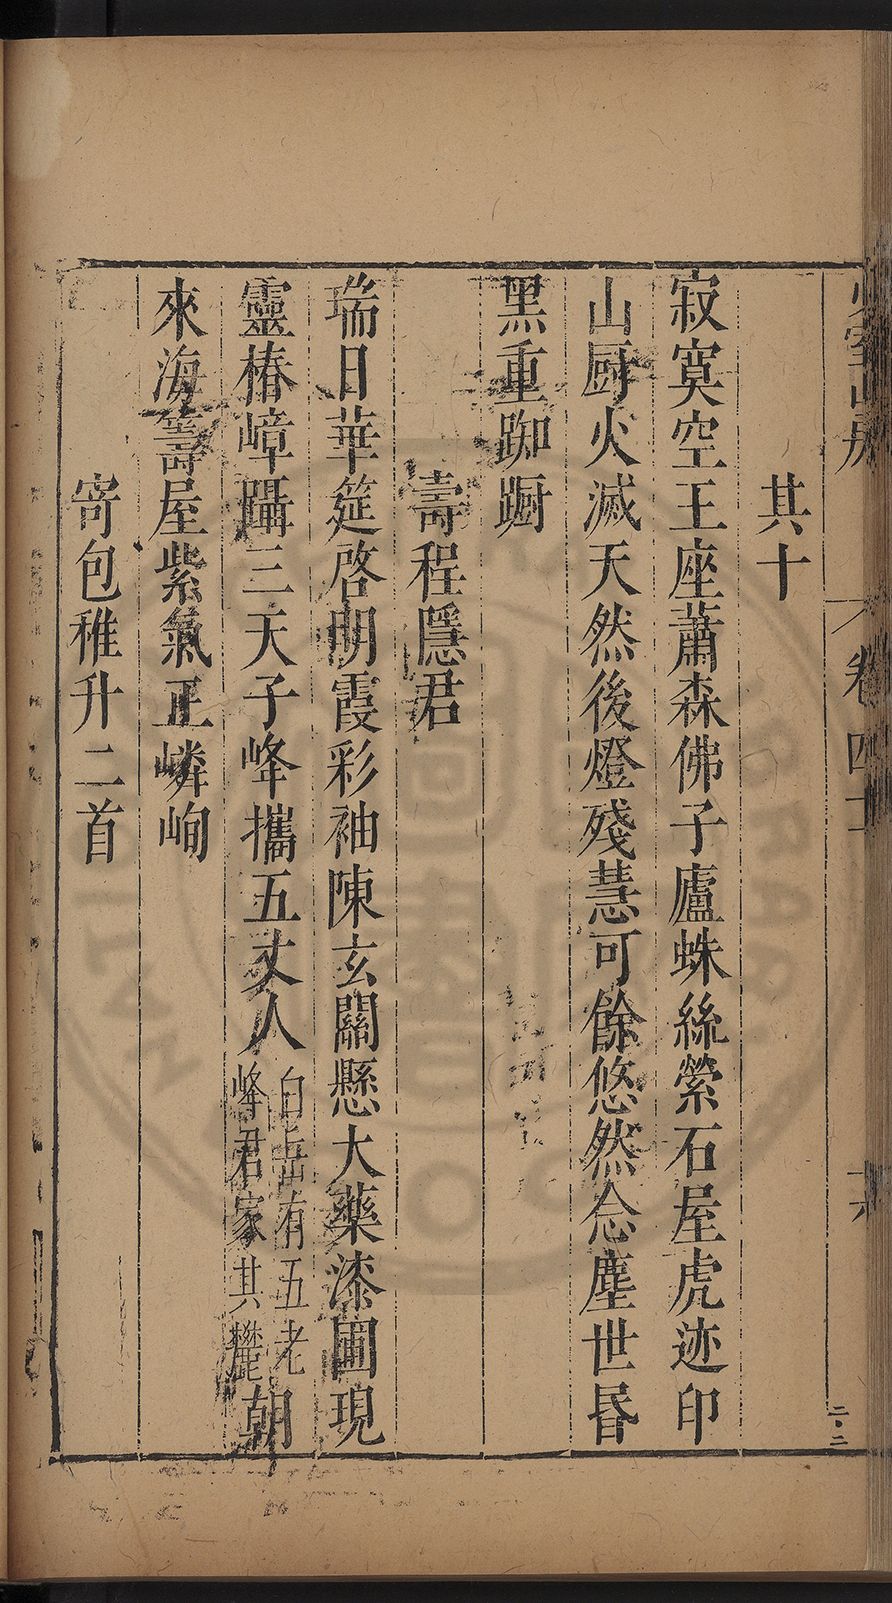 少室山房
卷四十
六
二·二
其十
寂寞空王座蕭森佛子廬蛛絲縈石屋虎迹印
山厨火滅天然後燈殘慧可餘悠然念塵世昏
黑重踟蹰
壽程隱君
瑞日華筵啓明霞彩袖陳玄關懸大藥漆園現
靈椿嶂躡三天子峰攜五丈人白岳有五老峰君家其麓朝
來海籌屋紫氣正嶙峋
寄包稚升二首